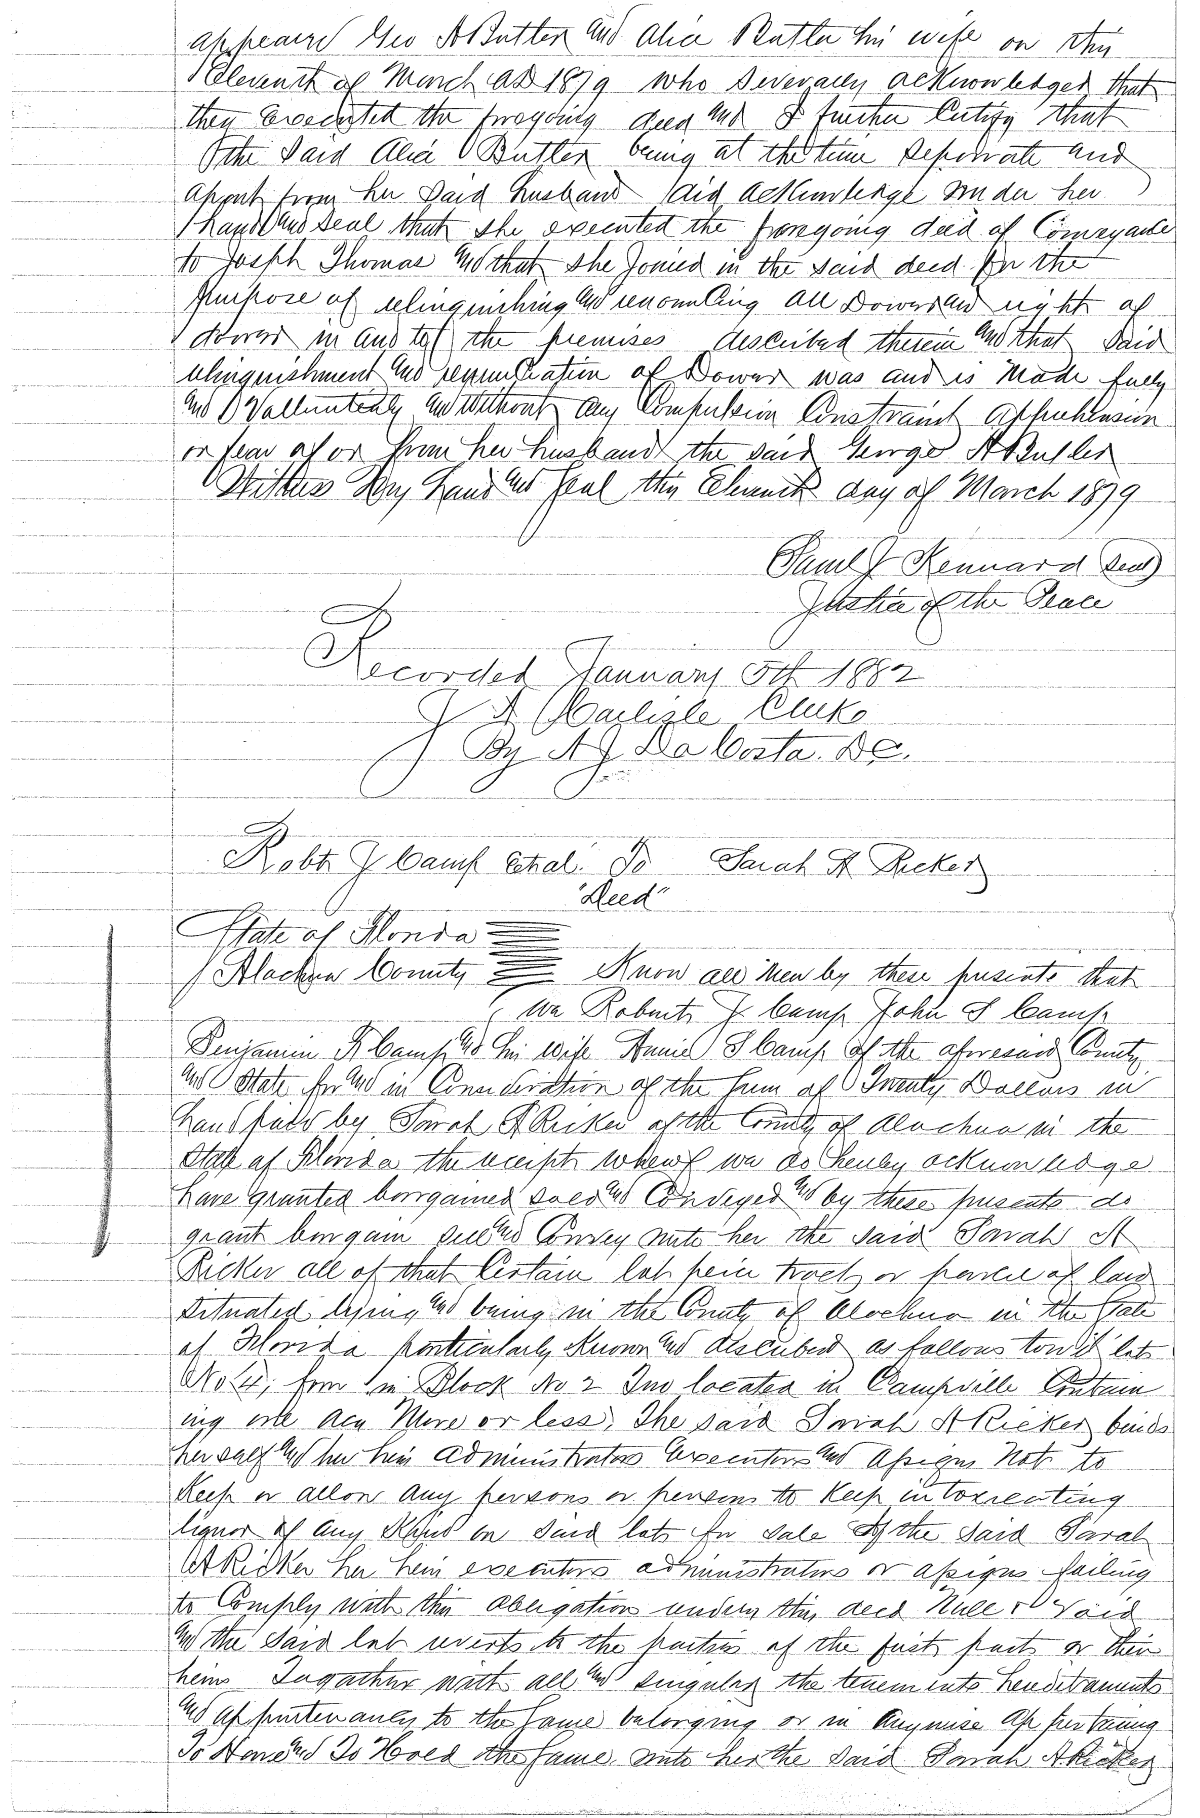 appeared Geo A Butler and Alice Butler his wife on this
Eleventh of March AD 1879 who severally acknowledged that
they executed the foregoing deed and I further Certify that
the said Alice Butler being at the time seperate and
apart from her said husband did acknowledge under her
hand and seal that she executed the foregoing deed of Conveyance
to Joseph Thomas and that she joined in the said deed for the
purpose of relinquishing and renouncing all Dower and right of
dower in and to the premises described therein and that said
relinquishment and renunciation of Dower was and is made freely
and Vallunteraly and without any Compulsion Constraint apprehension
or fear of or from her husband the said George A Butler
Witness my hand and seal this Eleventh day of March 1879
Saml J Kennard (seal)
Justice of the Peace
Recorded January 5th 1882
J A Carlisle Clerk
By A J Da Costa. D.C.
Robt J Camp etal. To Sarah A Ricker
"Deed"
State of Florida
Alachua County Know all men by these presents that
we Robert J. Camp John S Camp
Benjamin F Camp and his wife Annie S Camp of the aforesaid County
and State for and in Consideration of the sum of Twenty Dollars in
hand paid by Sarah A Ricker of the County of Alachua in the
State of Florida the receipt whereof we do hereby acknowledge
have granted bargained sold and Conveyed and by these presents do
grant bargain sell and Convey unto her the said Sarah A
Ricker all of that Certain lot peice tract or parcel of land
situated lying and being in the County of Alachua in the State
of Florida particularly Known and described as follows towit lot
No (4) four in Block No 2 Two located in Campville Contain
ing one acre More or less, The said Sarah A Ricker binds
her self and her heirs administrators executors and assigns not to
Keep or allow any persons or persons to Keep intoxicating
liquor of any Kind on said lots for sale If the said Sarah
A Ricker her heirs executors administrators or assigns failing
to Comply with this obligation renders this deed Null & Void
and the said lot reverts to the parties of the first part or their
heirs Togather with all and singular the tenements hereditaments
and appurtenances to the same belonging or in anywise appertaining
To Have and To Hold the same unto her the said Sarah A Ricker